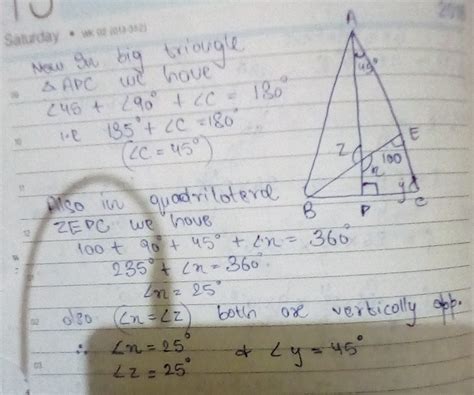 Saturday • WK 02 (013-352)
Now In big triangle
Δ APC we have
∠45 + ∠90° + ∠C = 180°
i.e 135° + ∠C = 180°
(∠C = 45°)
Also in quadrilateral
ZEPC we have
100 + 90° + 45° + ∠n = 360°
235° + ∠n = 360°
∠n = 25°
also (∠n = ∠z) both are vertically opp.
∴ ∠n = 25° & ∠y = 45°
∠z = 25°
A
45°
E
Z
100
n
y
B
P
C
09
10
11
12
02
03